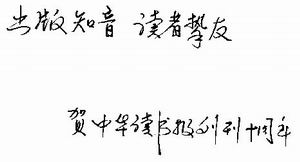 出版知音 读者挚友
贺中华读书报创刊十周年